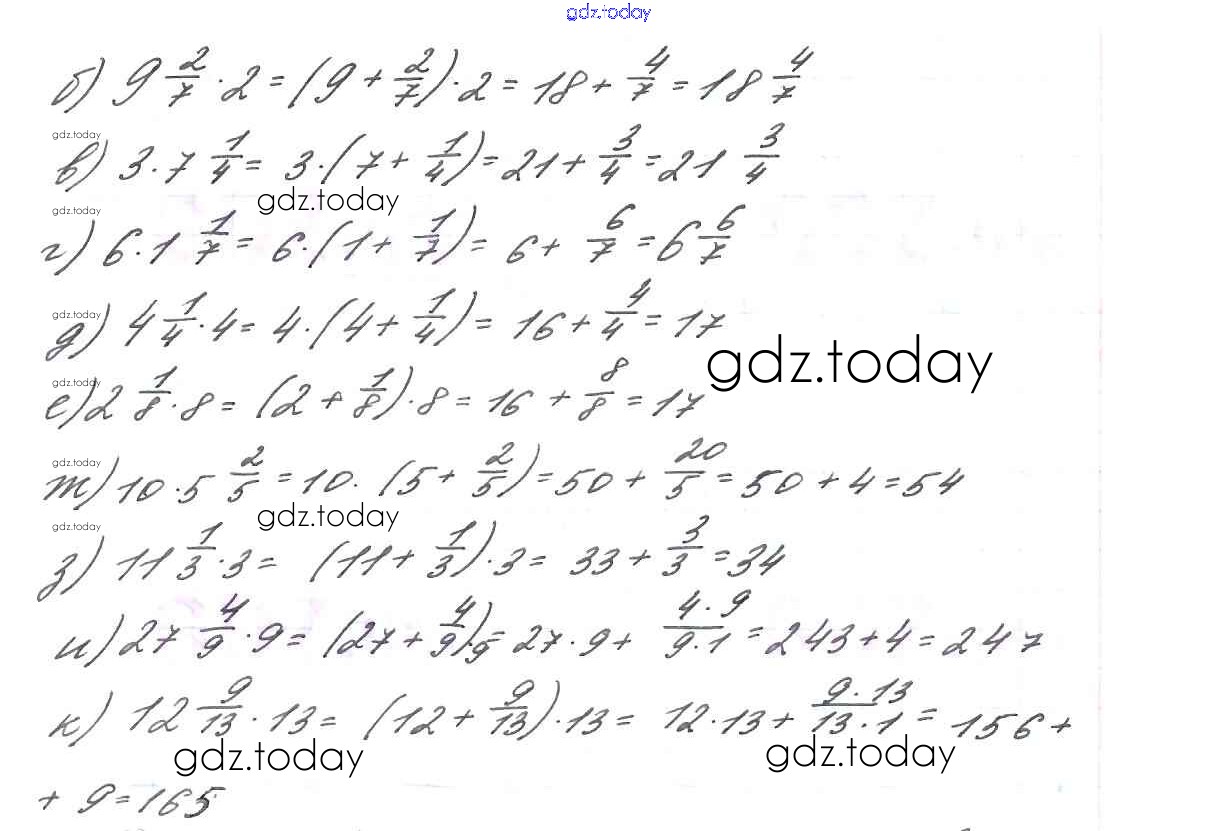 gdz.today
б) 9 2/7 · 2 = (9 + 2/7) · 2 = 18 + 4/7 = 18 4/7
gdz.today
в) 3 · 7 1/4 = 3 · (7 + 1/4) = 21 + 3/4 = 21 3/4
gdz.today
gdz.today
г) 6 · 1 1/7 = 6 · (1 + 1/7) = 6 + 6/7 = 6 6/7
gdz.today
д) 4 1/4 · 4 = 4 · (4 + 1/4) = 16 + 4/4 = 17
gdz.today
gdz.today
е) 2 1/8 · 8 = (2 + 1/8) · 8 = 16 + 8/8 = 17
gdz.today
ж) 10 · 5 2/5 = 10 · (5 + 2/5) = 50 + 20/5 = 50 + 4 = 54
gdz.today
gdz.today
з) 11 1/3 · 3 = (11 + 1/3) · 3 = 33 + 3/3 = 34
и) 27 4/9 · 9 = (27 + 4/9) · 9 = 27 · 9 + 4 · 9/9 · 1 = 243 + 4 = 247
к) 12 9/13 · 13 = (12 + 9/13) · 13 = 12 · 13 + 9 · 13/13 · 1 = 156 +
gdz.today
gdz.today
+ 9 = 165